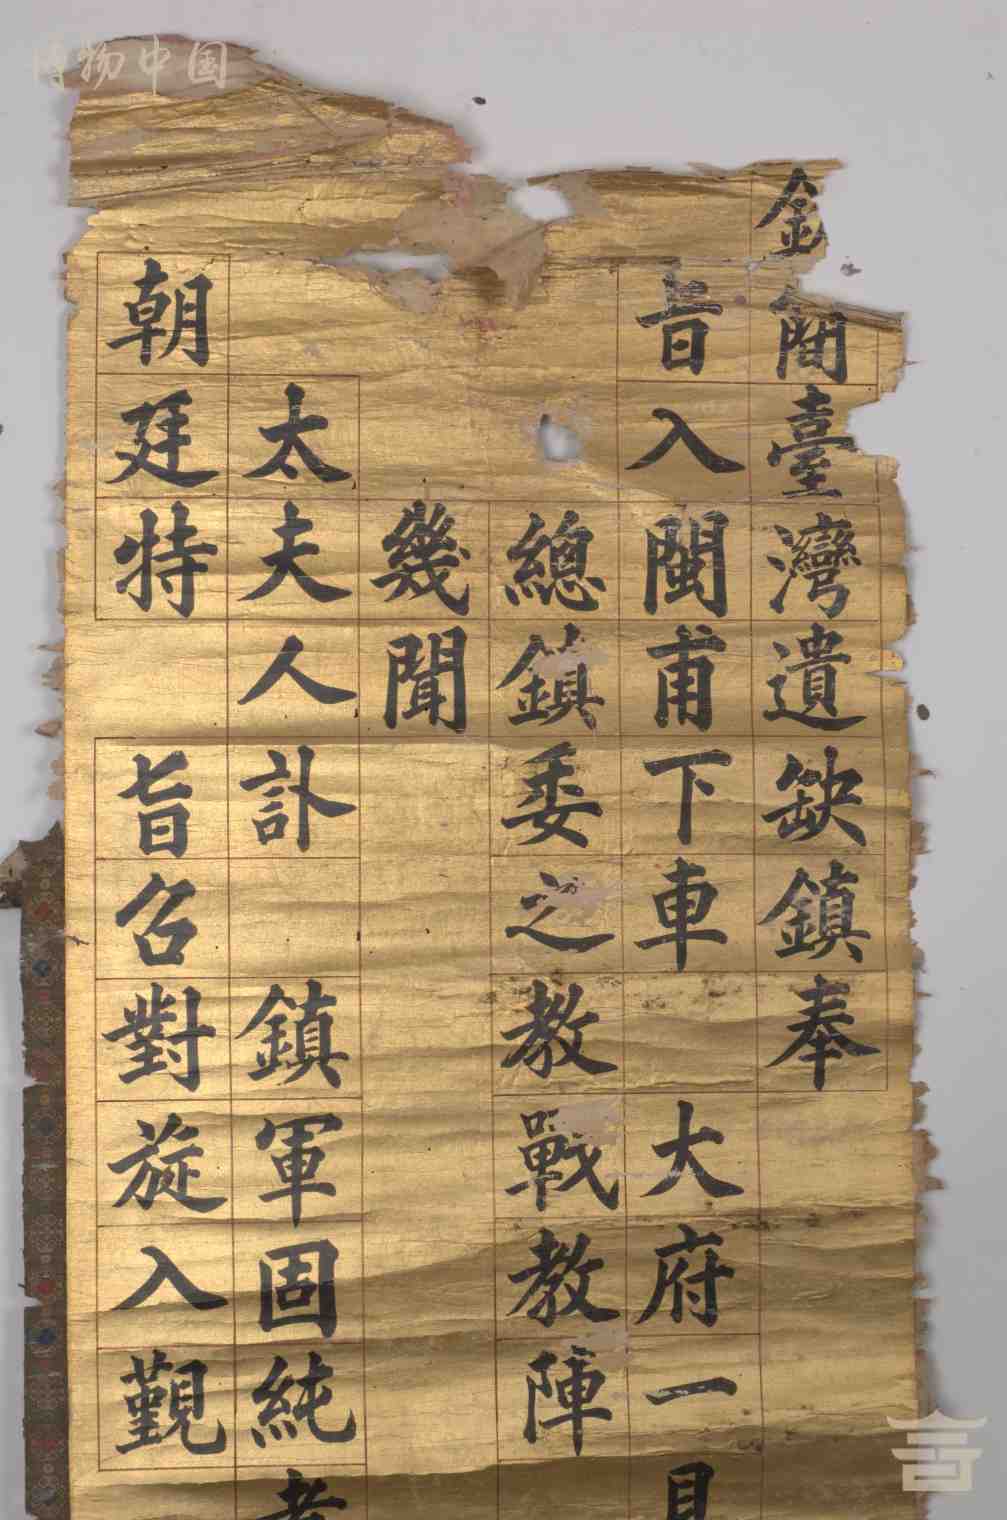 博物中国
簡臺灣遺缺鎮奉
旨入閩甫下車大府一見
總鎮委之教戰教陣
幾聞
太夫人訃鎮軍固純孝
朝廷特旨召對旋入覲